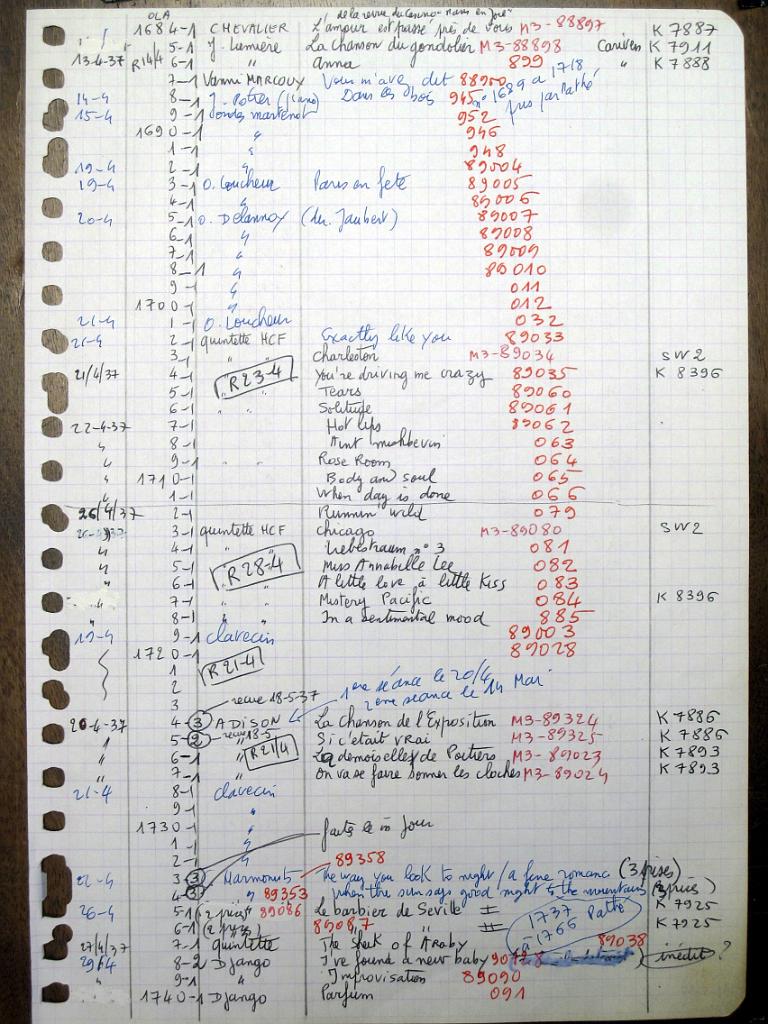 OLA
de la revue du Casino Paris en Joie
1684-1 CHEVALIER L'amour est passé près de vous M3-88897 K 7887
5-1 J. Lumière La chanson du gondolier M3-88898 K 7911
13-4-37 R14/4 6-1 " Anna 899 " K 7888
7-1 Vanni MARCOUX Vous m'avez dit 88900
14-4 8-1 J. (piano) Dans les bois 945 n° 1689 à 1718
15-4 9-1 ondes martenot 952 pris par Pathé
1690-1 " 946
1-1 " 948
19-4 2-1 " 89004
19-4 3-1 O. Coucheur Paris en fete 89005
4-1 " 89006
20-4 5-1 O. Delannoy (dir. Jaubert) 89007
6-1 " 89008
7-1 " 89009
8-1 " 89010
9-1 " 011
1700-1 " 012
21-4 1-1 O. Coucheur 032
21-4 2-1 quintette HCF Exactly like you 89033
3-1 " " Charleston M3-89034 SW 2
21/4/37 4-1 R23-4 You're driving me crazy 89035 K 8396
5-1 " " Tears 89060
6-1 " " Solitude 89061
22-4-37 7-1 Hot lips 89062
" 8-1 Aint misbehavin 063
" 9-1 " " Rose Room 064
" 1710-1 Body and soul 065
" 1-1 When day is done 066
26/4/37 2-1 Runnin wild 079
3-1 quintette HCF Chicago M3-89080 SW2
" 4-1 " " Liebestraum n° 3 081
" 5-1 R28-4 Miss Annabelle Lee 082
" 6-1 A little love a little Kiss 083
7-1 " " Mistery Pacific 084 K 8396
8-1 " " In a sentimental mood 885
19-4 9-1 clavecin 89003
1720-1 89028
1 R21-4
2
3 recue 18-5-37 1ere séance le 20/4
2eme séance le 14 Mai
20-4-37 4-3 ADISON La Chanson de l'Exposition M3-89324 K 7886
" 5-2 recue 18-5 Si c'était vrai M3-89325 K 7886
" 6-1 R21/4 La demoiselles de Poitiers M3-89023 K 7893
" 7-1 On va se faire sonner les cloches M3-89024 K 7893
21-4 8-1 clavecin
9-1 "
1730-1 "
1-1 "
2-1 "
89358
22-4 3-3 Marmonits the way you look to night / a fine romance (3 prises)
4-3 " 89353 when the sun says good night to the mountains (3 prises)
26-4 5-1 (2 prises) 89086 Le barbier de Seville # K 7925
6-1 89087 # 1737 à 1766 Pathé K 7925
27/4/37 7-1 quintette The Sheik of Araby 89038
29/4 8-2 Django I've found a new baby inédit ?
" 9-1 " Improvisation 89090
" 1740-1 Django Parfum 091